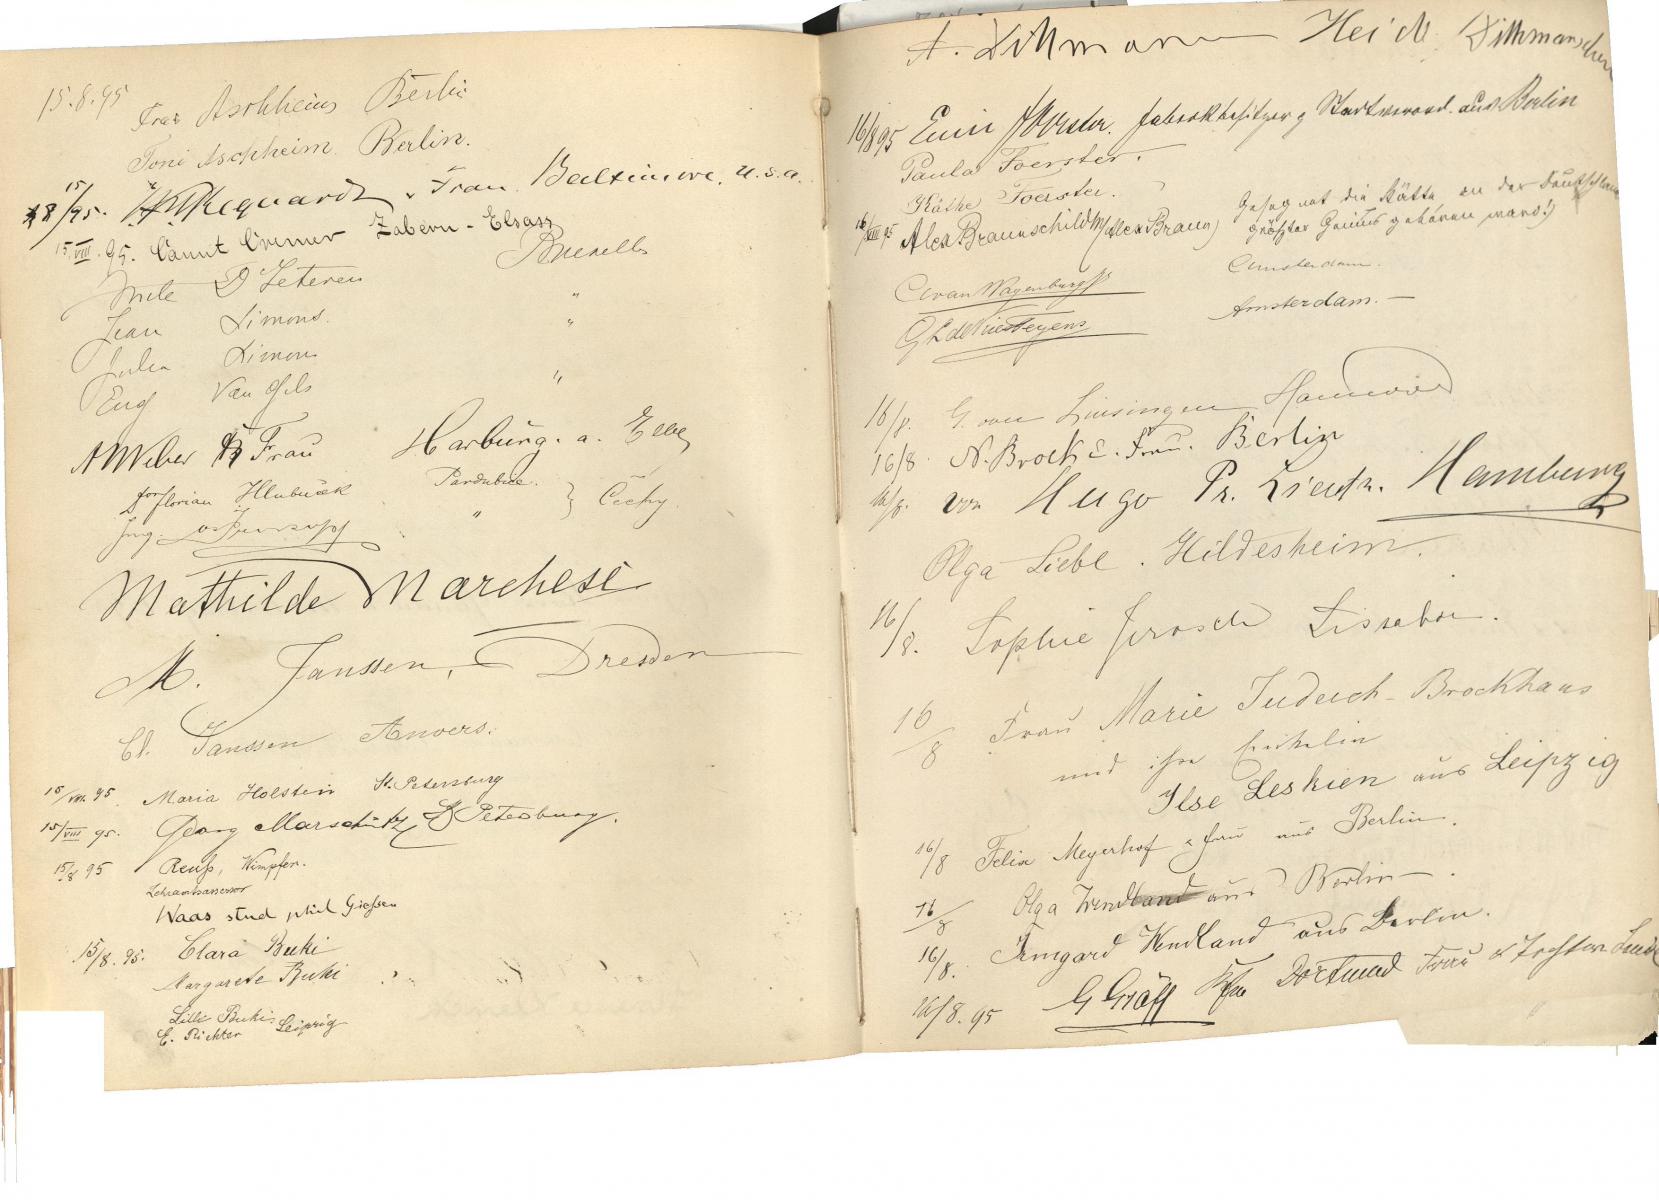 15.8.95 Frau Aschheim Berlin
Toni Aschheim Berlin.
15/8/95. Frau. Baltimore. U.S.A.
15/VIII.95. Cremer Zabern - Elsass
Mlle D Zeteren Bruxelles
Jean Simons. "
Julia Simons "
Eug Van Gils "
A Weber & Frau Harburg. a. Elbe
Dor Florian Hlubuček Pardubice. } Čechy
Ing. "
Mathilde Marchesi
M. Janssen, Dresden
Cl. Janssen Anvers.
15/VIII. 95. Maria Holstein St. Petersburg
15/VIII 95. Georg Marschütz St Petersburg.
15/8 95 Reuß, Wimpfen.
Lehramtsassessor
Waas stud phil Gießen
15/8.95. Clara Buki
Margarete Buki
Lilli Buki.
E. Richter Leipzig
A. Dittmann Heide Dithmarschen
16/8 95 Emil Foerster. Fabrikbesitzer aus Berlin
Paula Foerster.
Käthe Foerster.
16/VIII 95 Alex Braunschild (Alex Braun)
Amsterdam.
Amsterdam.—
16/8. G. von Linsingen Hannover
16/8 N. Brock u. Frau. Berlin
16/8. von Hugo Pr. Lieutn. Hamburg
Olga Liebe. Hildesheim.
16/8. Sophie Jerosch Lissabon.
16/8 Frau Marie Judeich-Brockhaus
und ihre Enkelin
Ilse Leskien aus Leipzig
16/8 Felix Meyerhof u Frau aus Berlin.
16/8 Olga Wendland aus Berlin.
16/8. Irmgard Wendland aus Berlin.
16/8.95 G Gräff Kfm Dortmund Frau u Tochter